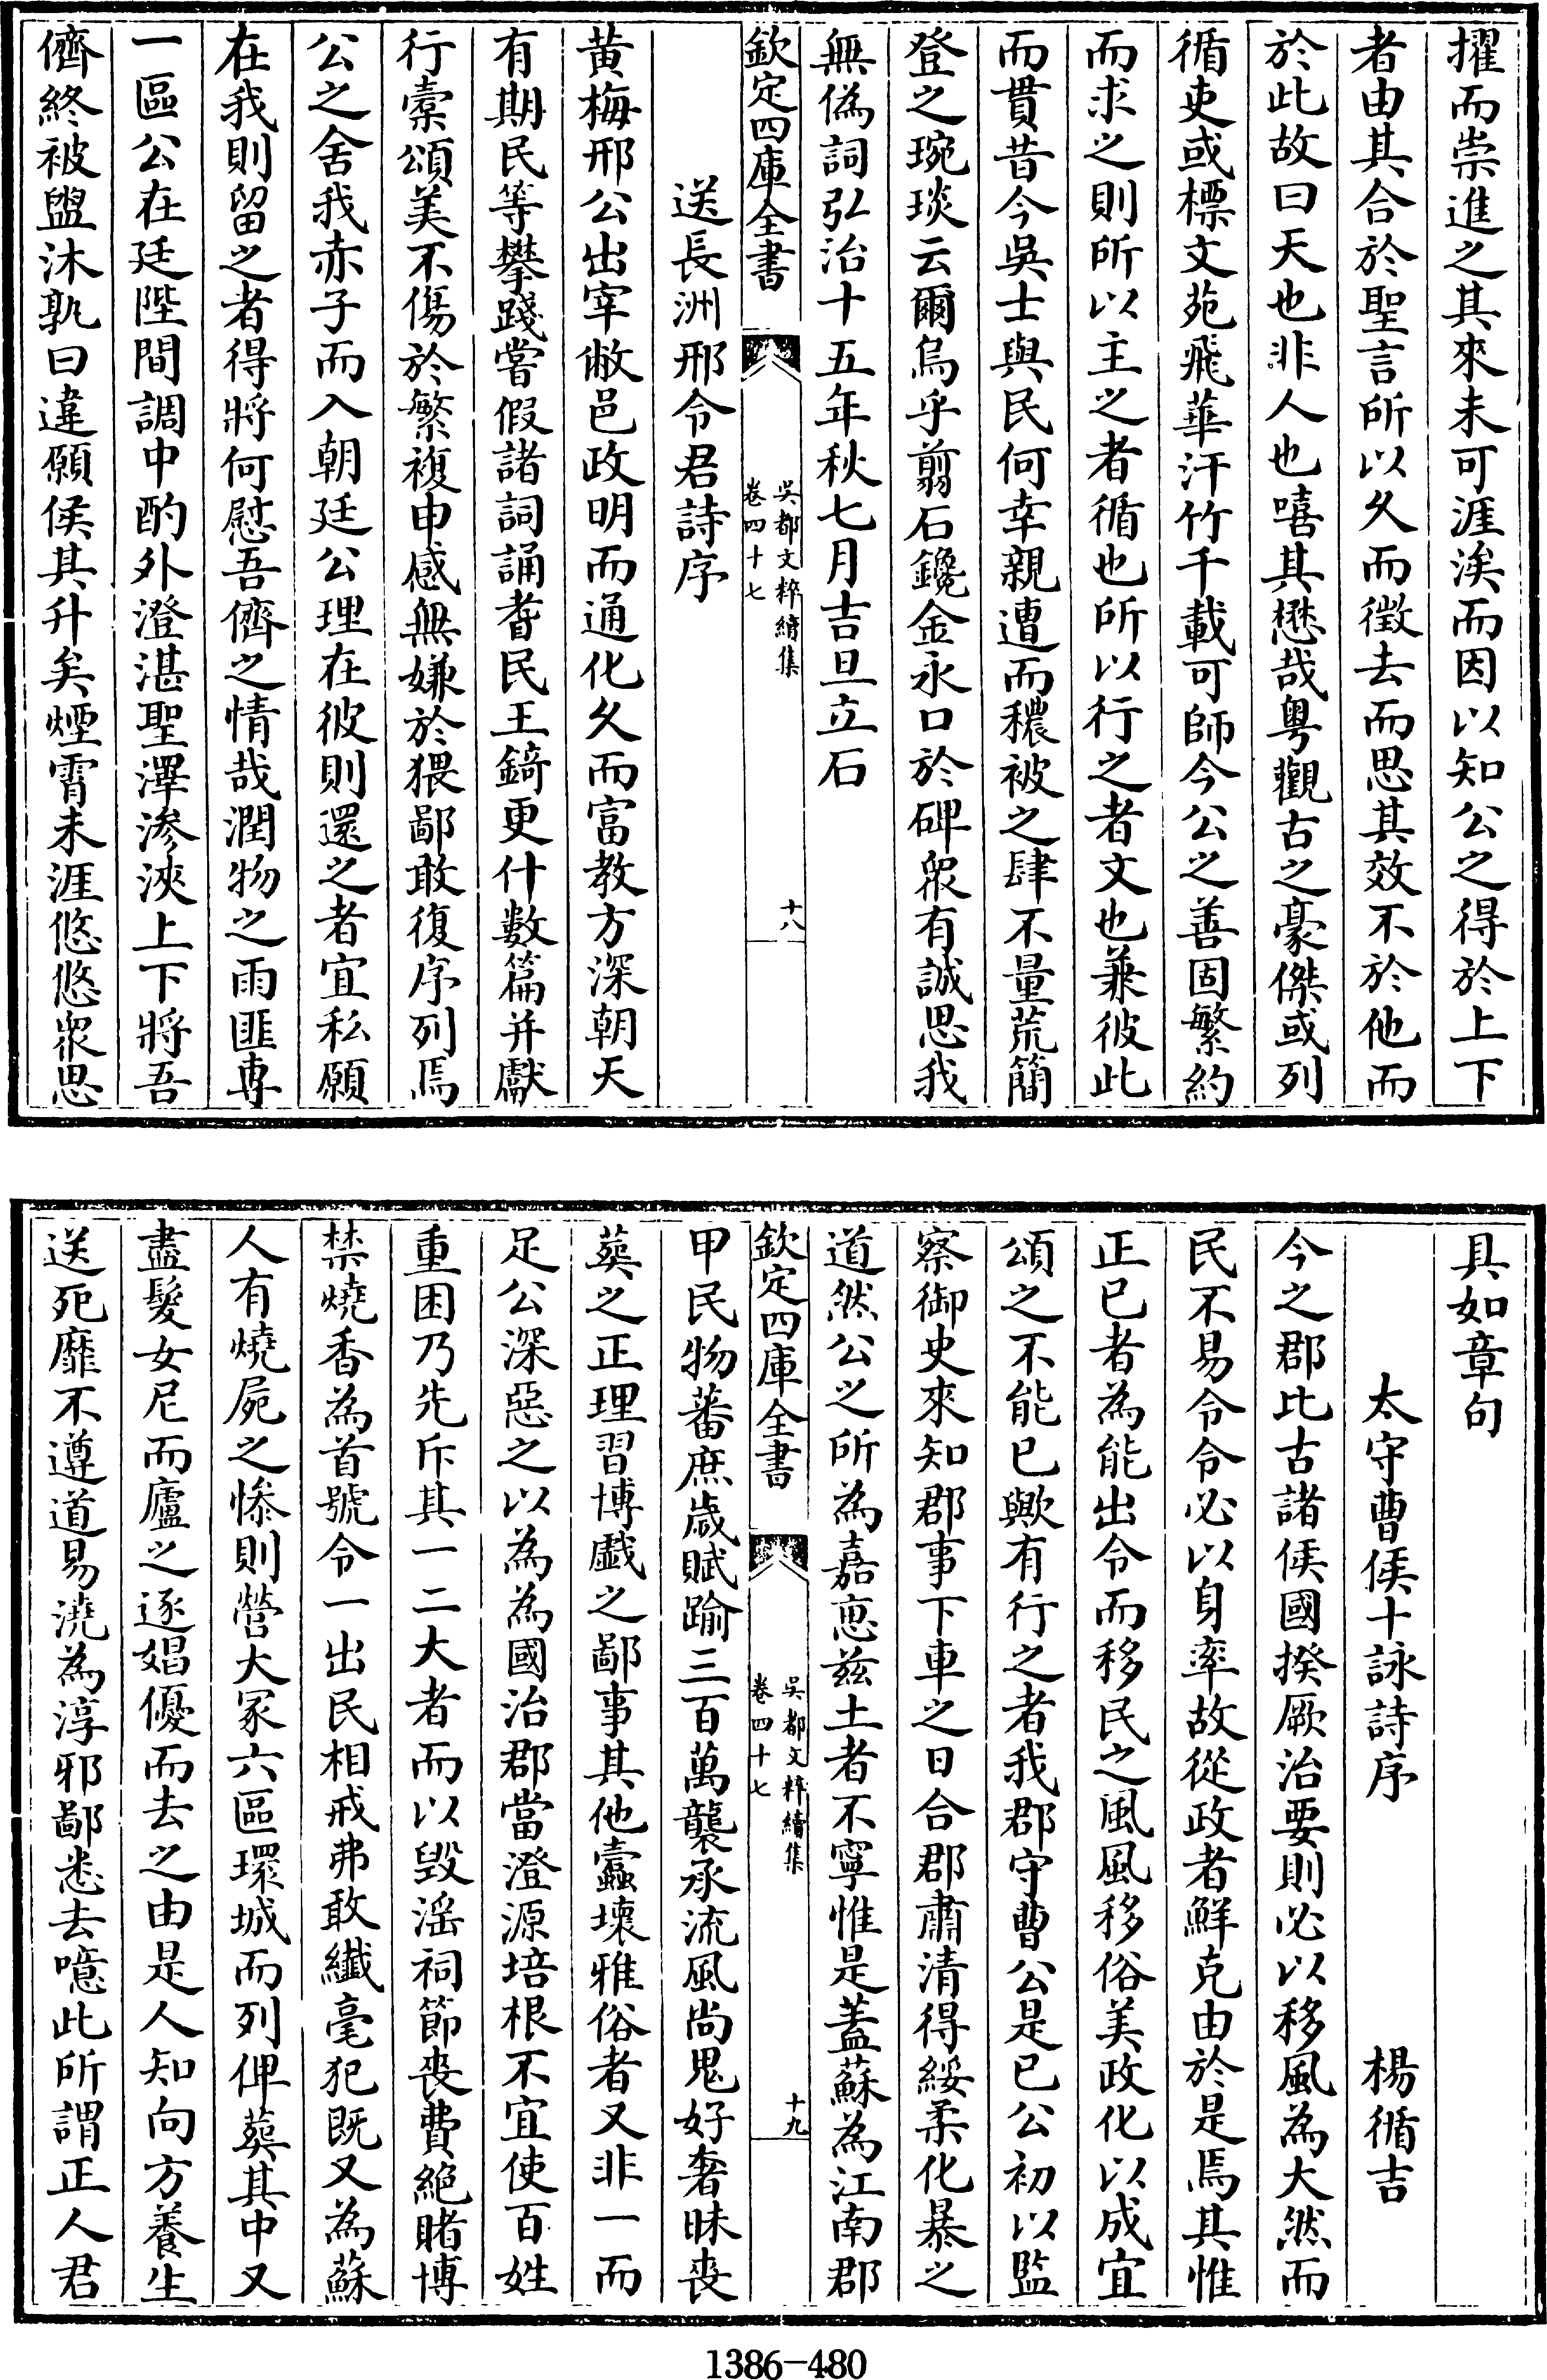 擢而崇進之其來未可涯涘而因以知公之得於上下
者由其合於聖言所以久而徵去而思其效不於他而
於此故曰天也非人也嘻其懋哉粤觀古之豪傑或列
循吏或標文苑飛華汗竹千載可師今公之善固繁約
而求之則所以主之者循也所以行之者文也兼彼此
而貫昔今吳士與民何幸親遭而穠被之肆不量荒簡
登之琬琰云爾烏乎翦石鑱金永口於碑衆有誠思我
無偽詞弘治十五年秋七月吉旦立石
欽定四庫全書
吳都文粹續集
卷四十七
十八
送長洲邢令君詩序
黄梅邢公出宰敝邑政明而通化久而富教方深朝天
有期民等攀踐嘗假諸詞誦耆民王錡更什數篇并獻
行槖頌美不傷於繁複申感無嫌於猥鄙敢復序列焉
公之舍我赤子而入朝廷公理在彼則還之者宜私願
在我則留之者得將何慰吾儕之情哉潤物之雨匪専
一區公在廷陛間調中酌外澄湛聖澤滲浹上下將吾
儕終被盥沐孰曰違願侯其升矣煙霄未涯悠悠衆思
具如章句
太守曹侯十詠詩序 楊循吉
今之郡比古諸侯國揆厥治要則必以移風為大然而
民不易令令必以身率故從政者鮮克由於是焉其惟
正已者為能出令而移民之風風移俗美政化以成宜
頌之不能已歟有行之者我郡守曹公是已公初以監
察御史來知郡事下車之日合郡肅清得綏柔化暴之
道然公之所為嘉恵兹土者不寧惟是蓋蘇為江南郡
欽定四庫全書
吳都文粹續集
卷四十七
十九
甲民物蕃庶歳賦踰三百萬襲承流風尚鬼好奢昧喪
葬之正理習博戲之鄙事其他蠹壊雅俗者又非一而
足公深惡之以為為國治郡當澄源培根不宜使百姓
重困乃先斥其一二大者而以毁淫祠節喪費絶賭博
禁燒香為首號令一出民相戒弗敢纖毫犯既又為蘇
人有燒屍之慘則營大冢六區環城而列俾葬其中又
盡髮女尼而廬之逐娼優而去之由是人知向方養生
送死靡不遵道易澆為淳邪鄙悉去噫此所謂正人君
1386-480